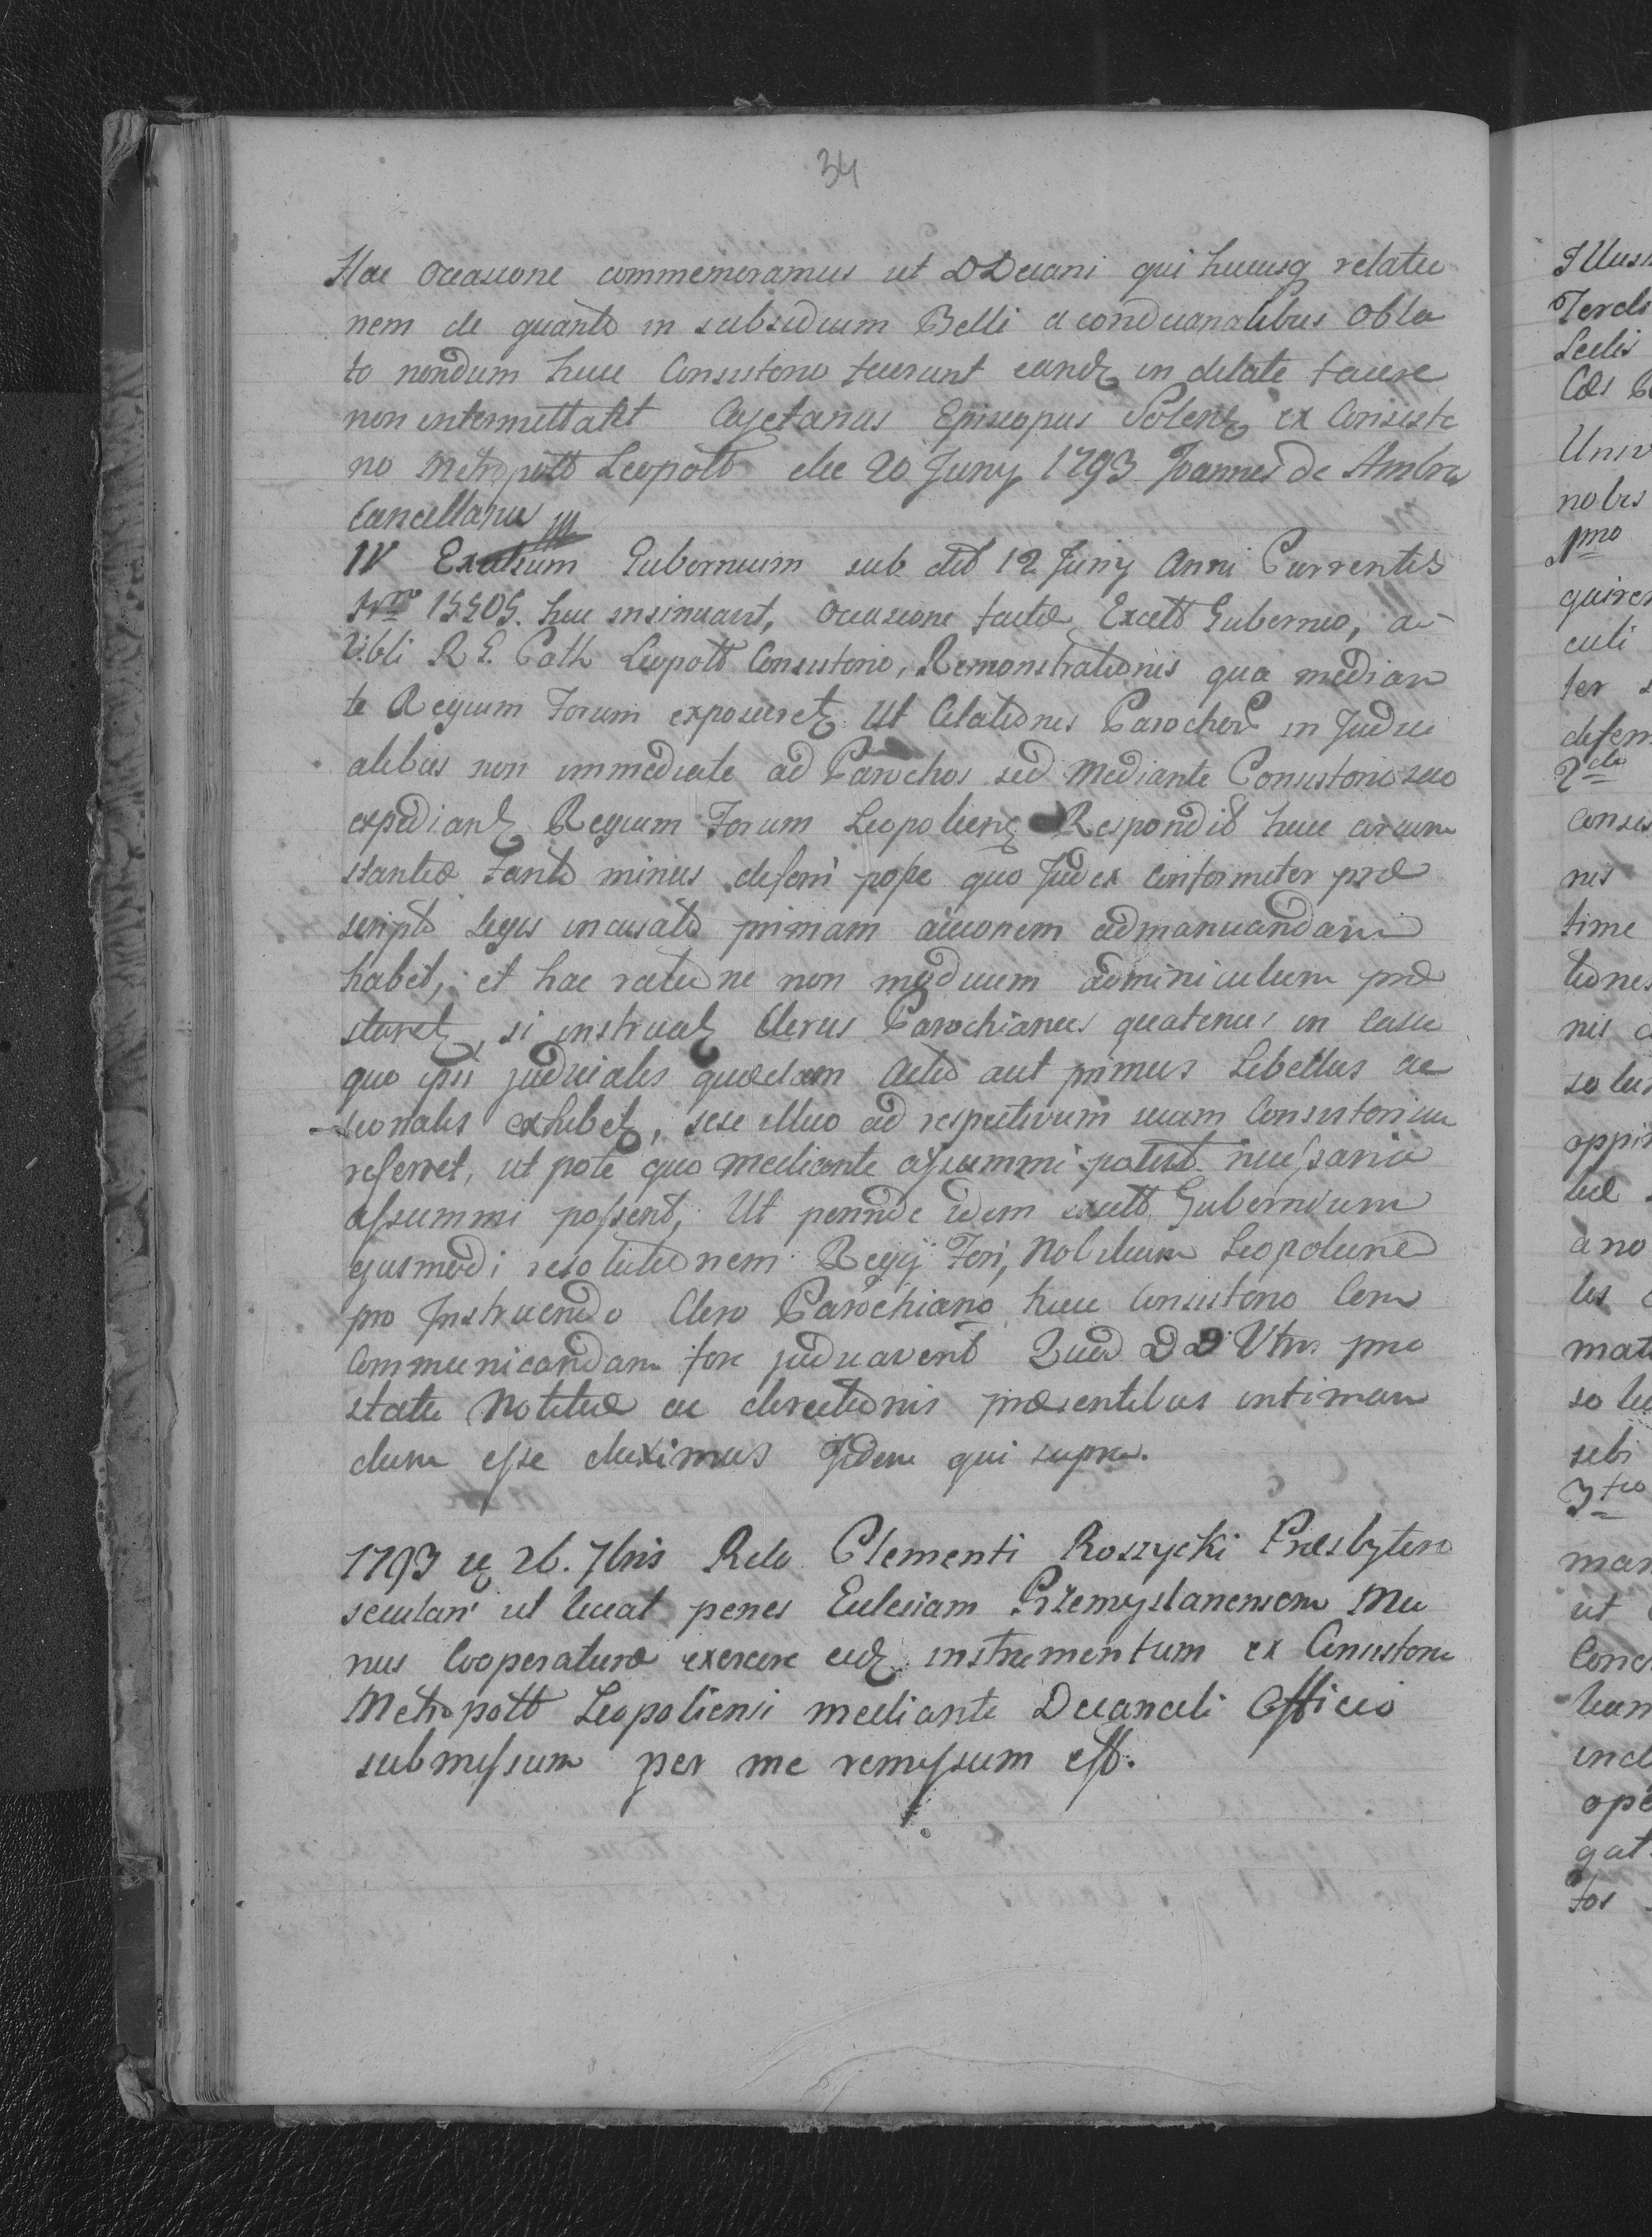 34
Hac Occasione commemoramus ut DDecani qui hucusq relatio
nem de quanto in subsidium Belli a condecanalibus Obla
to nondum huic Consistorio fecerunt eand in delate facere
non intermittant Cajetanus Episcopus Solens ex Consisto
rio Metropolt Leopolt die 20 Juny 1793 Joannes de Ambro
Cancellarius
IV Excelsum Gubernium sub dto 12 Juny Anni Currentis
Nro 15505. huc insinuavit, Occasione factæ Excelt Gubernio, a
Vbli R L Cath Leopolt Consistorio, Remonstrationis qua median
te Regium Forum exposceret Ut Citationes Parochor in Judici
alibus non immediate ad Parochos sed Mediante Consistorio suo
expediant Regium Forum Leopoliens Respondit huic circum
stantiæ tanto minus deferri posse quo Judex Conformiter præ
scripto Legis incusato primam accionem admanuandam
habet, et hac ratione non modicum adminiculum præ
staret, si instruat Clerus Parochianus quatenus in Casu
quo ipsi judicialis quædam Actio aut primus Libellus ac
cionalis exhibet, sese illico ad respectivum suum Consistorium
referret, ut pote quo Mediante assummi potest necessaria
assummi possent, Ut perinde idem excelt Gubernium
ejusmodi resolutionem Regij Fori, Nobilium Leopoliene
pro Instruendo Clero Parochiano huic Consistorio Com
Communicandam fore judicaverit Quod DD Vtris pro
statu Notitiæ ac directionis præsentibus intiman
dum esse duximus Idem qui supra.
1793 26. 7bris Rdo Clementi Roszycki Presbytero
seculari ut liceat penes Ecclesiam Przemyslanensem Mu
nus Cooperaturæ exercere instrumentum ex Consistorio
Metropolt Leopoliensi mediante Decanali Officio
submissum per me remissum est.
Illus
Univ
nobis
pmo
ter
defen
2do
Conses
nis
time
tiones
nis
solu
appin
a no
les
mat
so lu
sibi
3tio
man
ut
Conc
ope
gat
tos